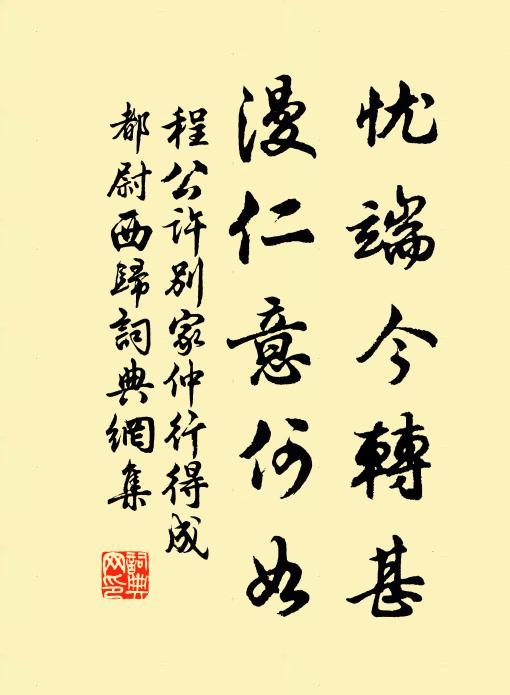 忧端今轉甚
漫仁意何如
程公许别家仲行得成
都尉西歸詞典網集
詞典网印